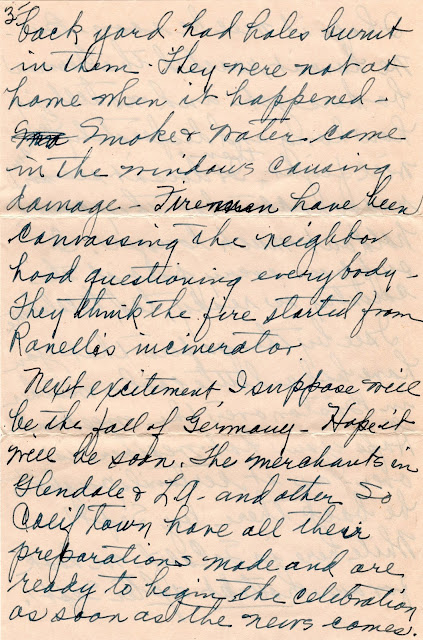 3-
back yard had holes burnt
in them. They were not at
home when it happened -
Smoke & water came
in the windows causing
damage - Firemen have been
canvassing the neighbor
hood questioning everybody -
They think the fire started from
Ranelli's incinerator.
Next excitement, I suppose will
be the fall of Germany - Hope it
will be soon. The merchants in
Glendale & L.A. and other So
Calif town have all their
preparations made and are
ready to begin the celebration
as soon as the news comes.